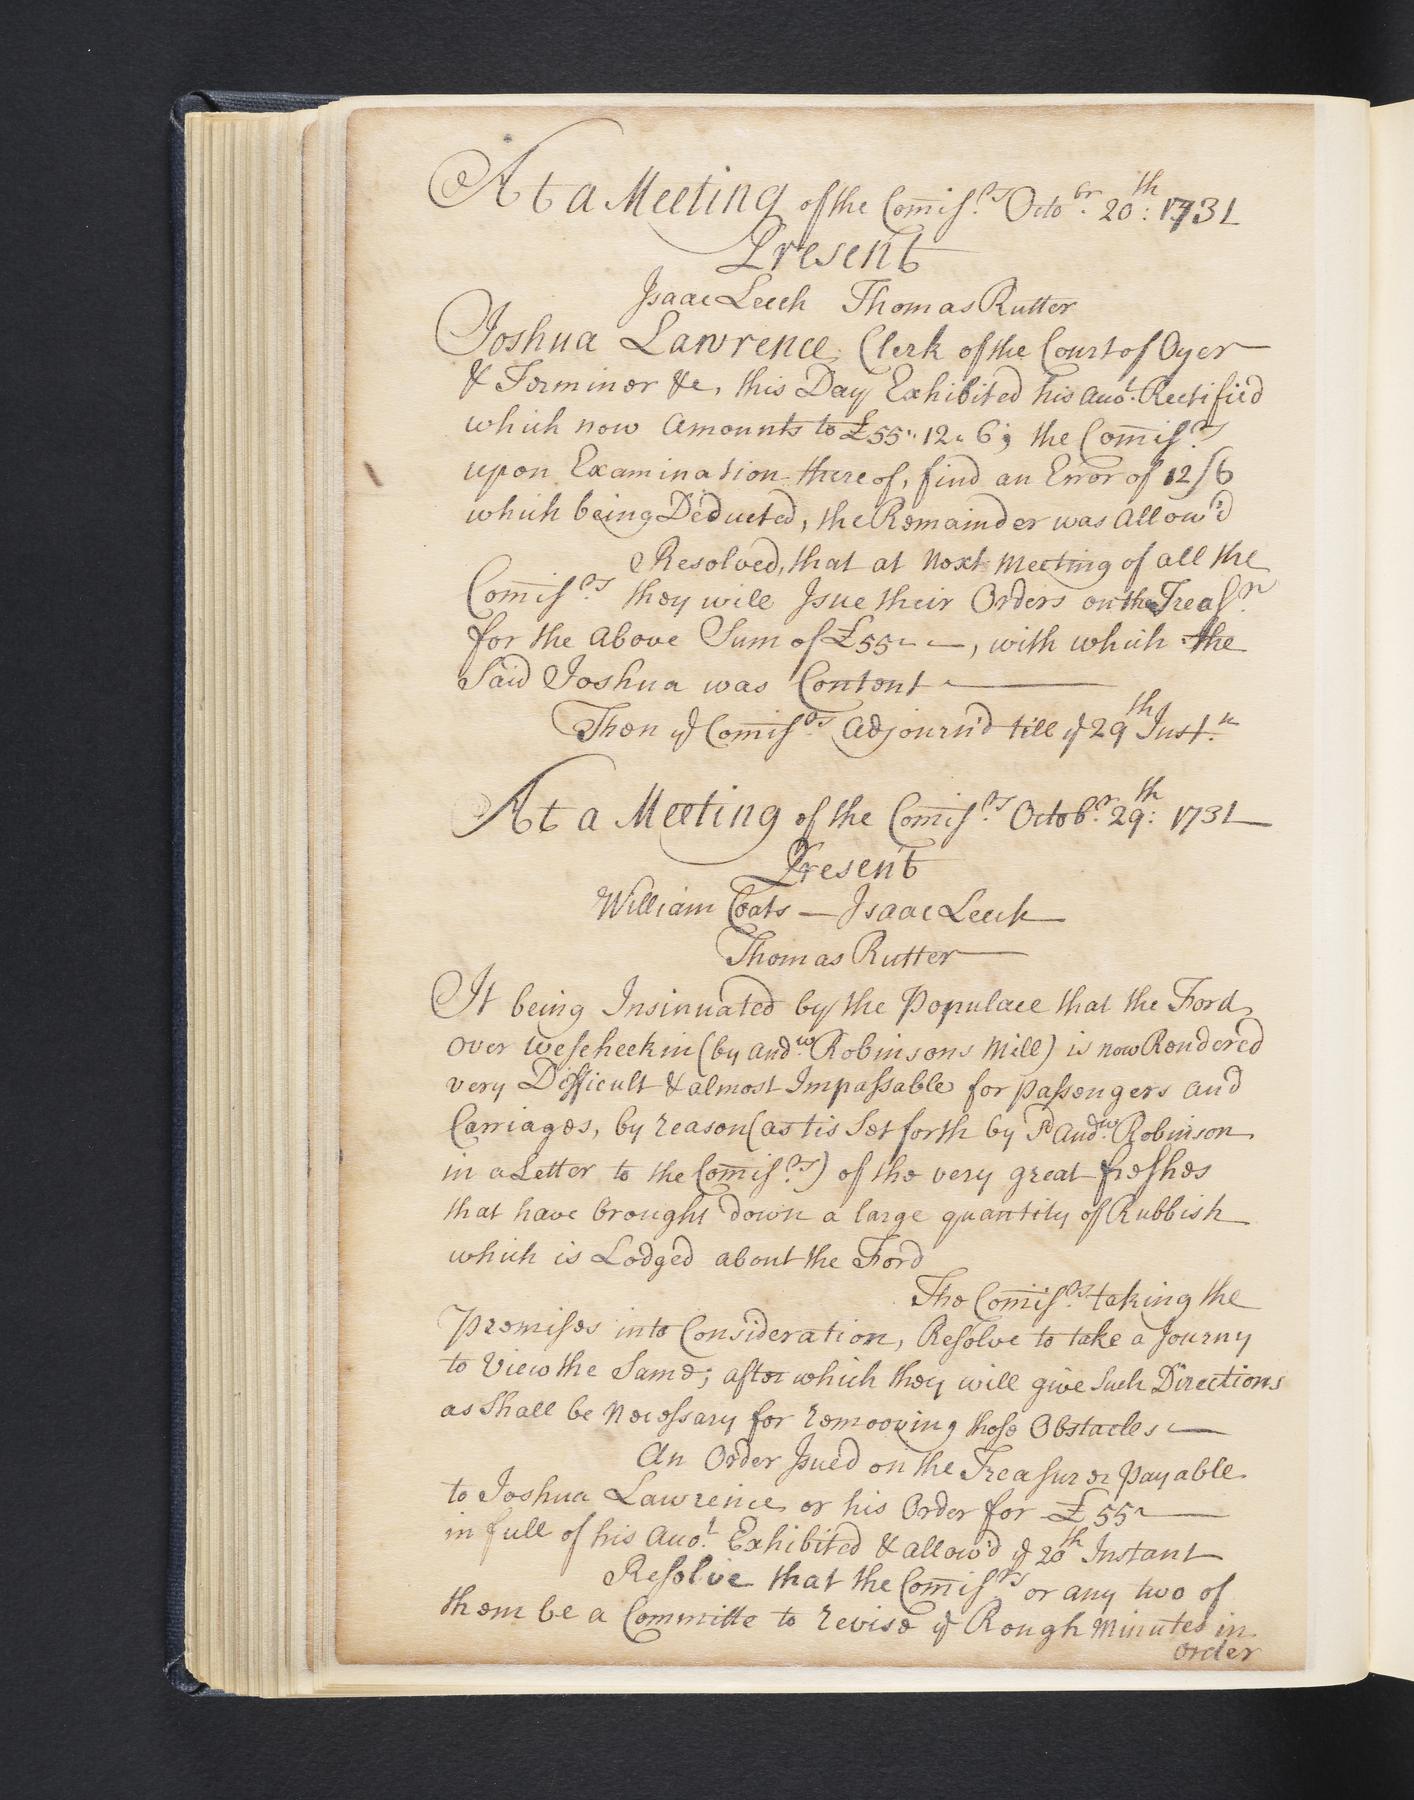 At a Meeting of the Comiss.rs Octo.br 20:th 1731
Present
Isaac Leech Thomas Rutter
Joshua Lawrence, Clerk of the Court of Oyer
& Terminer &c, this Day Exhibited his Acco.t Rectified
which now Amounts to £55" 12" 6; the Comiss.rs
upon Examination thereof, find an Error of 12/6
which being Deducted, the Remainder was Allow'd
Resolved, that at next Meeting of all the
Comiss.rs they will Issue their Orders on the Treas.r
for the above Sum of £55 – –, with which the
Said Joshua was Content
Then ye Comiss.rs Adjourn'd till ye 29th Inst.
At a Meeting of the Comiss.rs Octob.r 29:th 1731
Present
William Coats — Isaac Leech
Thomas Rutter
It being Insinuated by the Populace that the Ford
over Wescheekin (by And.w Robinsons Mill) is now Rendered
very Difficult & almost Impassable for passengers and
Carriages, by reason (as tis Set forth by sd And.w Robinson
in a Letter to the Comiss.rs) of the very great freshes
that have brought down a large quantity of Rubbish
which is Lodged about the Ford
The Comiss.rs taking the
Premises into Consideration, Resolve to take a Journy
to View the Same; after which they will give Such Directions
as Shall be Necessary for removing those Obstacles
An Order Isued on the Treasurer payable
to Joshua Lawrence or his Order for £55
in full of his Acco.t Exhibited & allow'd ye 20th Instant
Resolve that the Comiss.rs or any two of
them be a Committe to revise ye Rough Minutes in
order